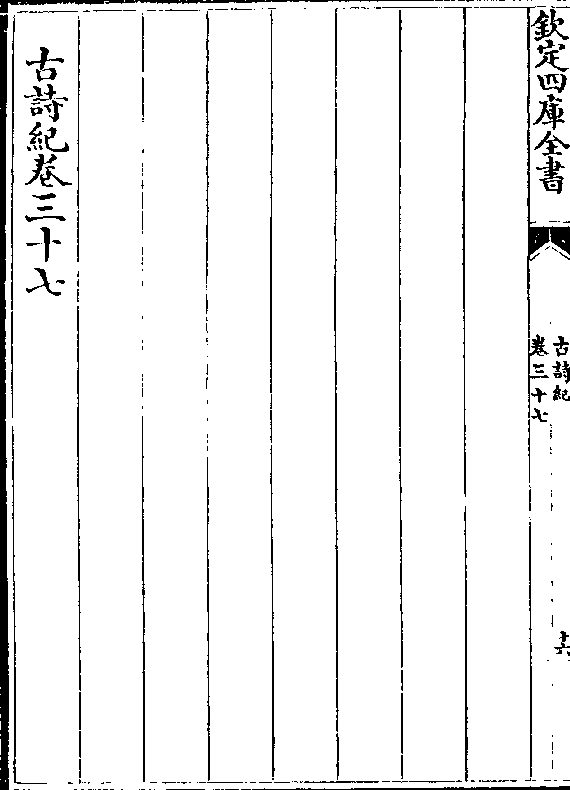 欽定四庫全書
古詩紀
卷三十七
十六
古詩紀卷三十七